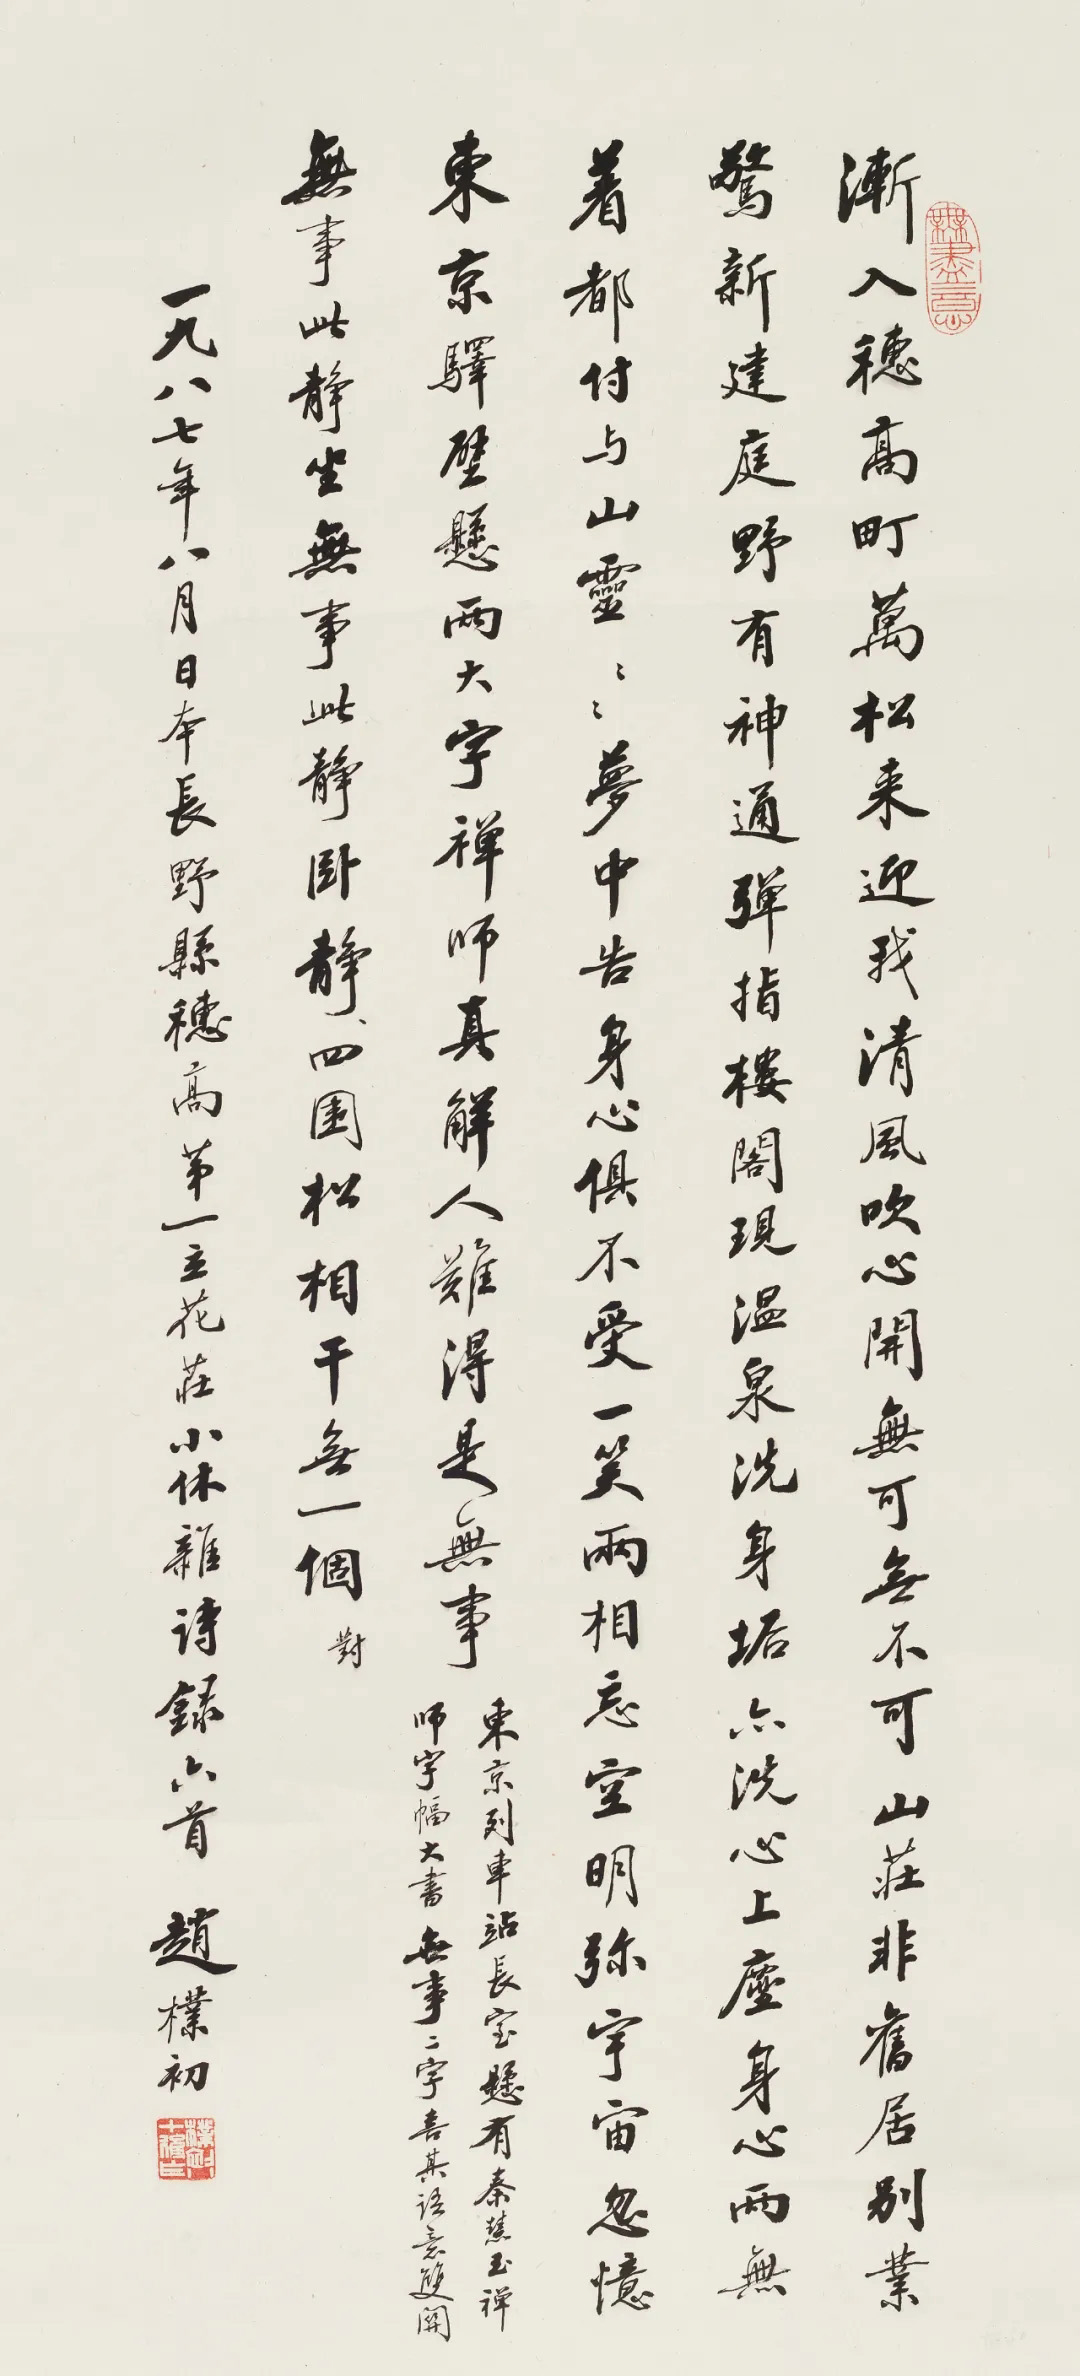 漸入穗高町萬松来迎我清風吹心開無可無不可山莊非舊居別業
驚新建庭野有神通弹指樓閣現温泉洗身垢亦洗心上塵身心两無
着都付与山靈〻〻夢中告身心俱不受一笑兩相忘空明弥宇宙忽憶
東京驛壁懸兩大字禅師真解人難得是無事
東京列車站長室懸有秦慧玉禅
师字幅大書無事二字喜其语意雙關
無事此静坐無事此静卧静、四围松相干無一個 對
一九八七年八月日本長野縣穗高第一立花莊小休雜詩録六首 趙樸初
無盡意
樸初